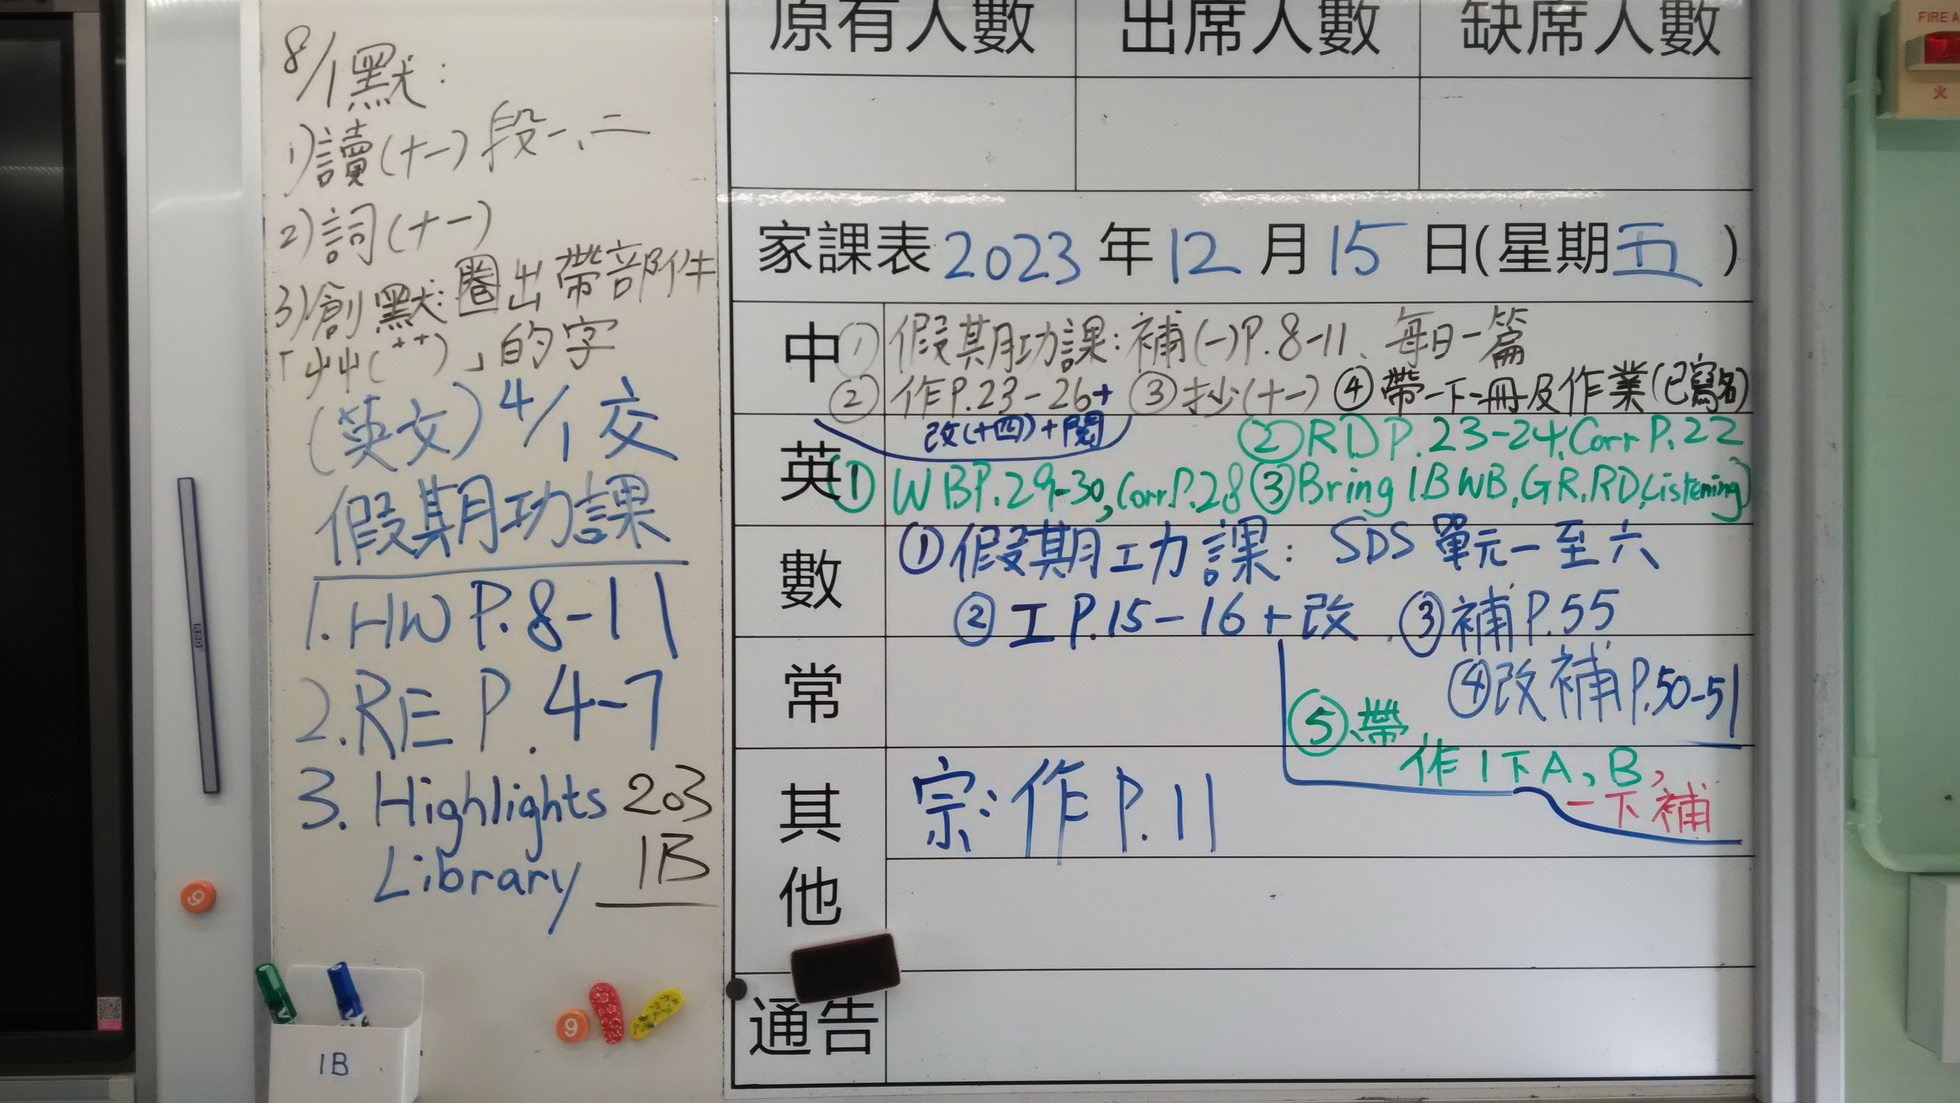 8/1默：
1)讀(十一)段一、二
2)詞(十一)
3)創默：圈出帶部件
「艸(艹)」的字
(英文)4/1交
假期功課
1.HW P.8-11
2.RE P.4-7
3. Highlights 203
Library 1B
1B
9
9
原有人數 出席人數 缺席人數
家課表2023年12月15日(星期五)
中 ①假期功課：補(一)P.8-11、每日一篇
②作P.23-26+ ③抄(十一) ④帶一下二冊及作業(已寫名)
改(十四)+閱
英 ②RD P.23-24,Corr P.22
①WB P.29-30,Corr.P.28 ③Bring 1B WB,GR.RD,Listening
數 ①假期功課：SDS 單元一至六
②工P.15-16+改 ③補P.55
常 ④改補P.50-51
⑤帶
作1下A,B,
一下補
其他 宗：作P.11
通告
FIRE A
火